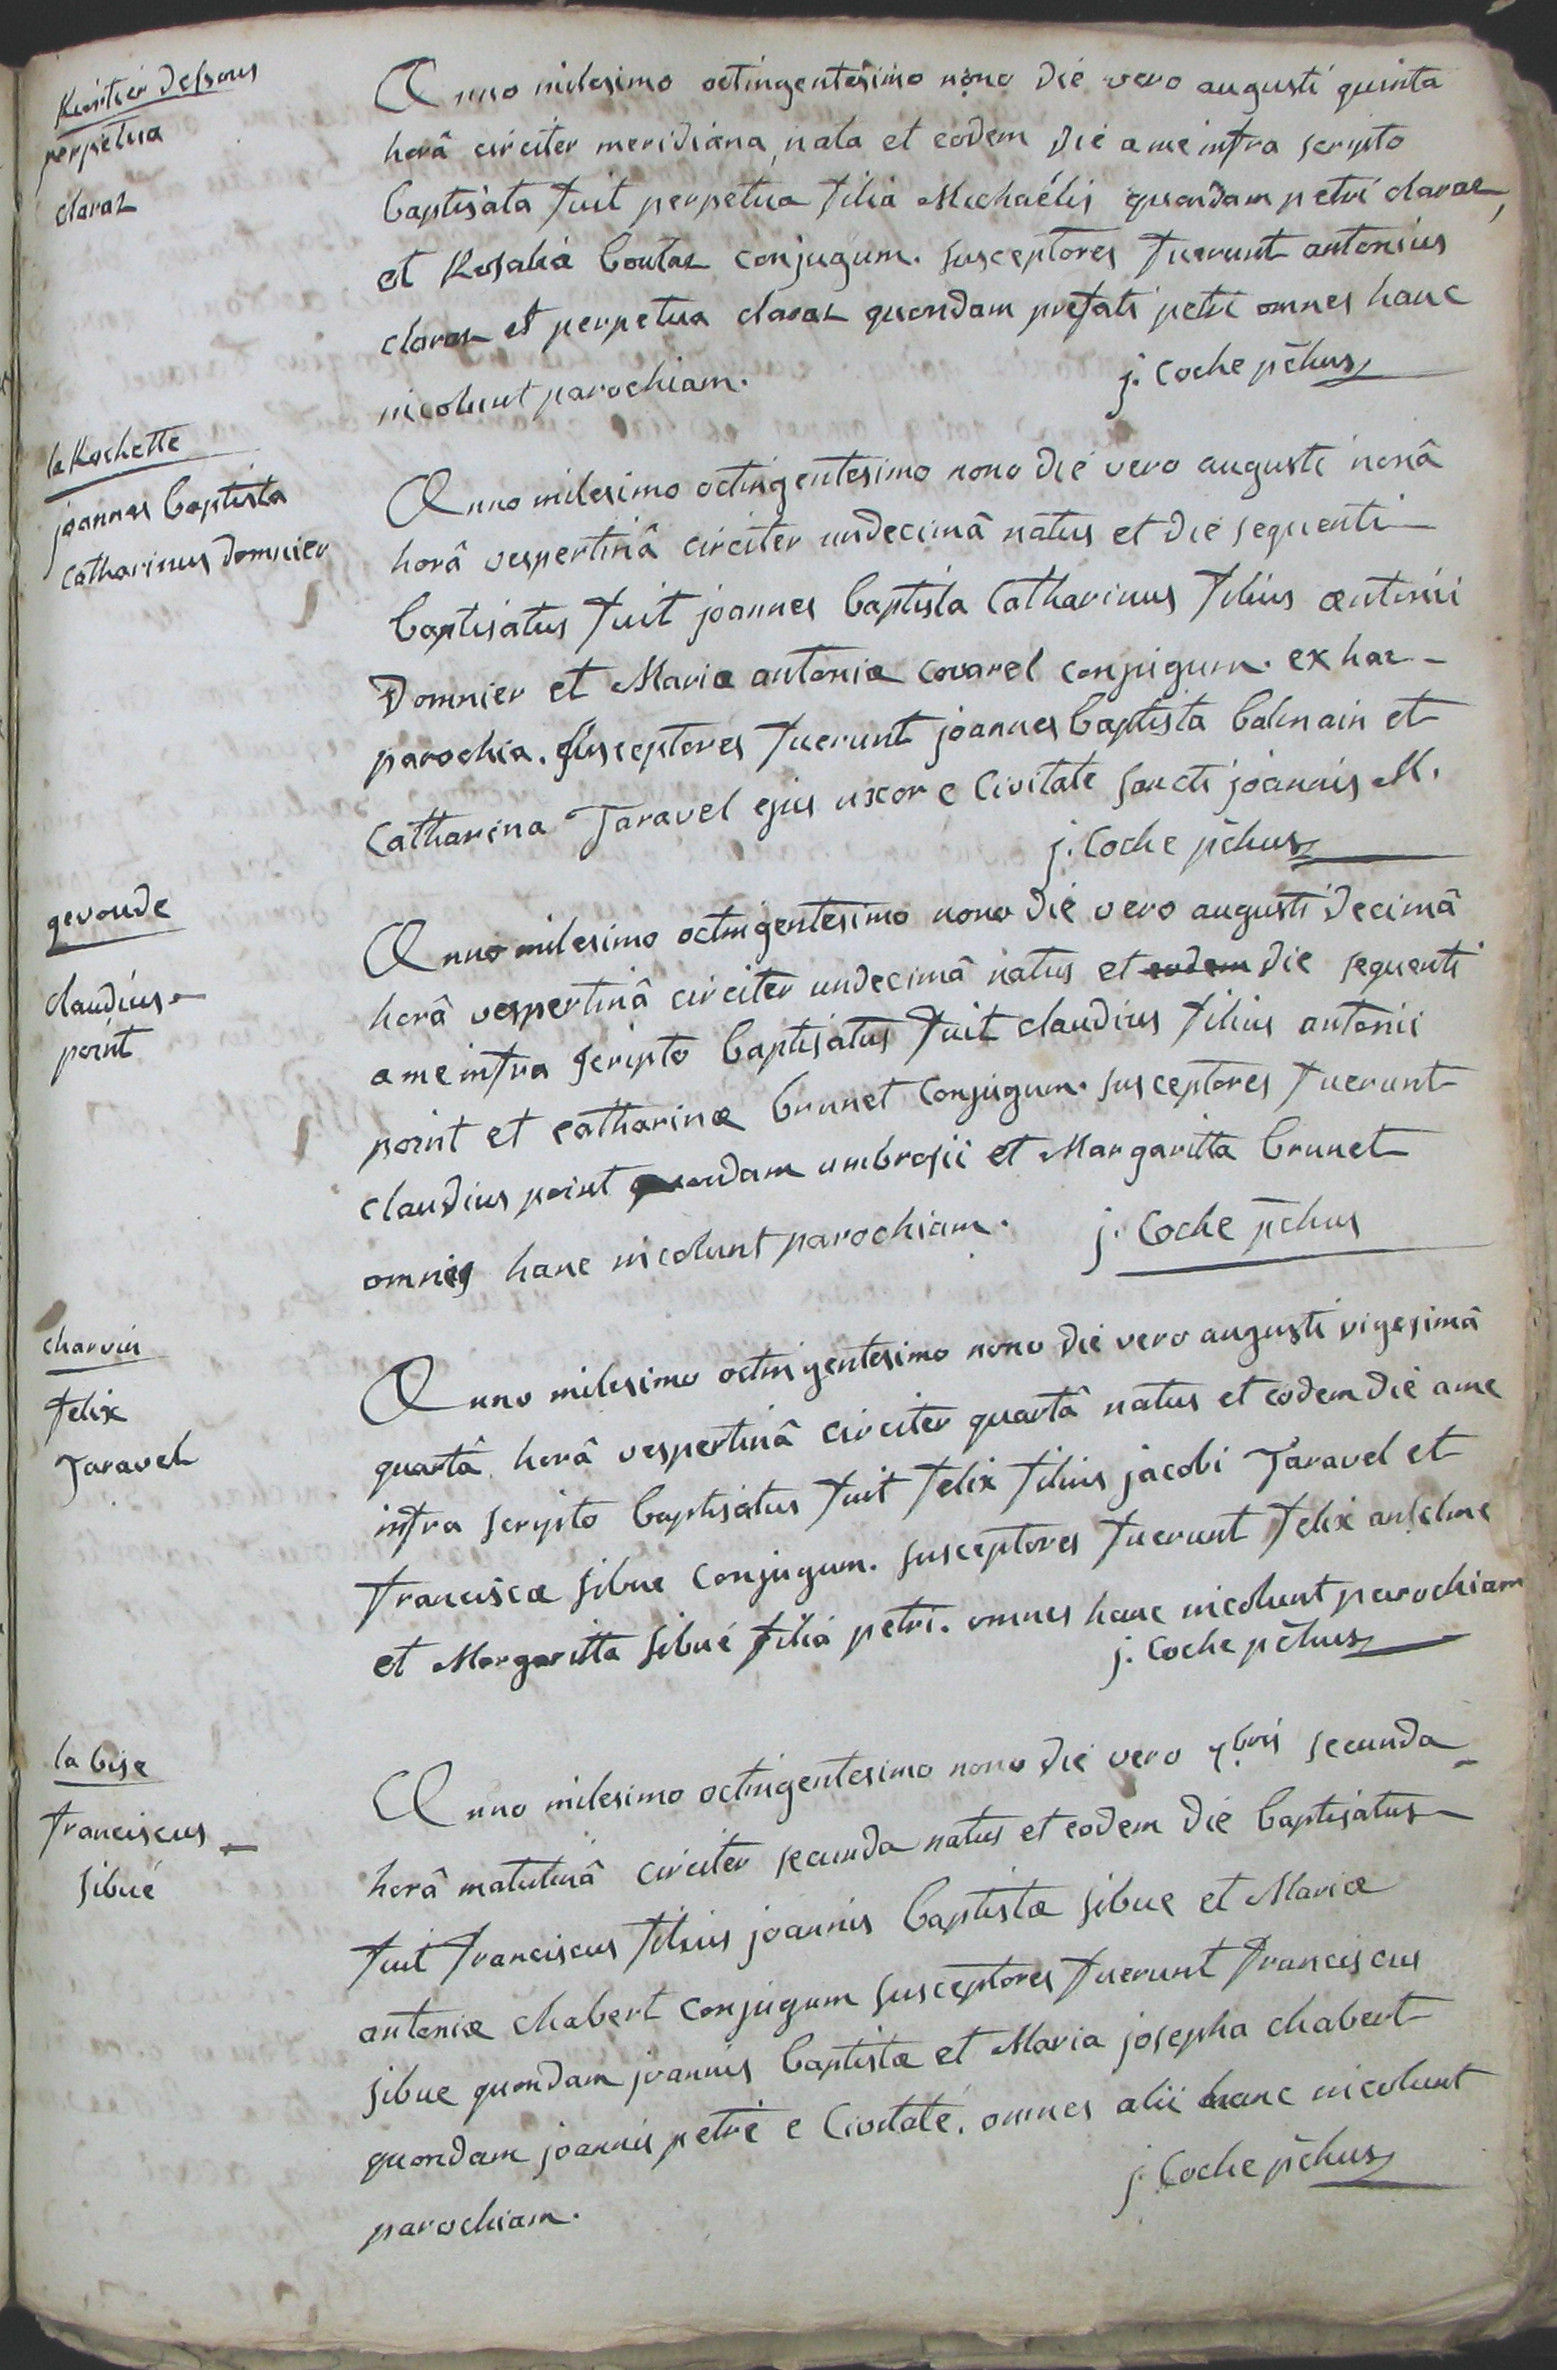 Kartier dessous
perpetua
claraz
Anno milesimo octingentesimo nono die vero augusti quinta
horâ circiter meridiana, nata et eodem die a me infra scripto
baptisata fuit perpetua filia Michaélis quondam petri claraz,
et Rosalia boutaz conjugum. susceptores fuerunt antonius
claraz et perpetua claraz quondam prefati petri omnes hanc
incolunt parochiam.
j. Coche pchus
la Rochette
joannes baptista
catharinus Domnier
Anno milesimo octingentesimo nono die vero augusti nonâ
horâ vespertinâ circiter undecimâ natus et die sequenti
baptisatus fuit joannes baptista Catharinus filius antonii
Domnier et Mariæ antoniæ covarel conjugum. ex hac
parochia. susceptores fuerunt joannes baptista balmain et
Catharina Taravel ejus uxor e Civitate sancti joannis M.
j. Coche pchus
gevoude
claudius
point
Anno milesimo octingentesimo nono die vero augusti decimâ
horâ vespertinâ circiter undecimâ natus et eodem die sequenti
a me infra scripto baptisatus fuit claudius filius antonii
point et catharinæ brunet conjugum. susceptores fuerunt
claudius point quondam ambrosii et Margaritta brunet
omnes hanc incolunt parochiam.
j. Coche pchus
charvin
felix
Taravel
Anno milesimo octingentesimo nono die vero augusti vigesimâ
quartâ horâ vespertinâ circiter quartâ natus et eodem die a me
infra scripto baptisatus fuit felix filius jacobi Taravel et
franciscæ sibue conjugum. susceptores fuerunt felix anselme
et Margaritta sibué filia petri. omnes hanc incolunt parochiam
j. Coche pchus
la bise
franciscus
sibué
Anno milesimo octingentesimo nono die vero 7bris secunda
horâ matutinâ circiter secunda natus et eodem die baptisatus
fuit franciscus filius joannis baptistæ sibue et Mariæ
antoniæ chabert conjugum susceptores fuerunt franciscus
sibue quondam joannis baptistæ et Maria josepha chabert
quondam joannis petri e Civitate. omnes alii hanc incolunt
parochiam.
j. Coche pchus